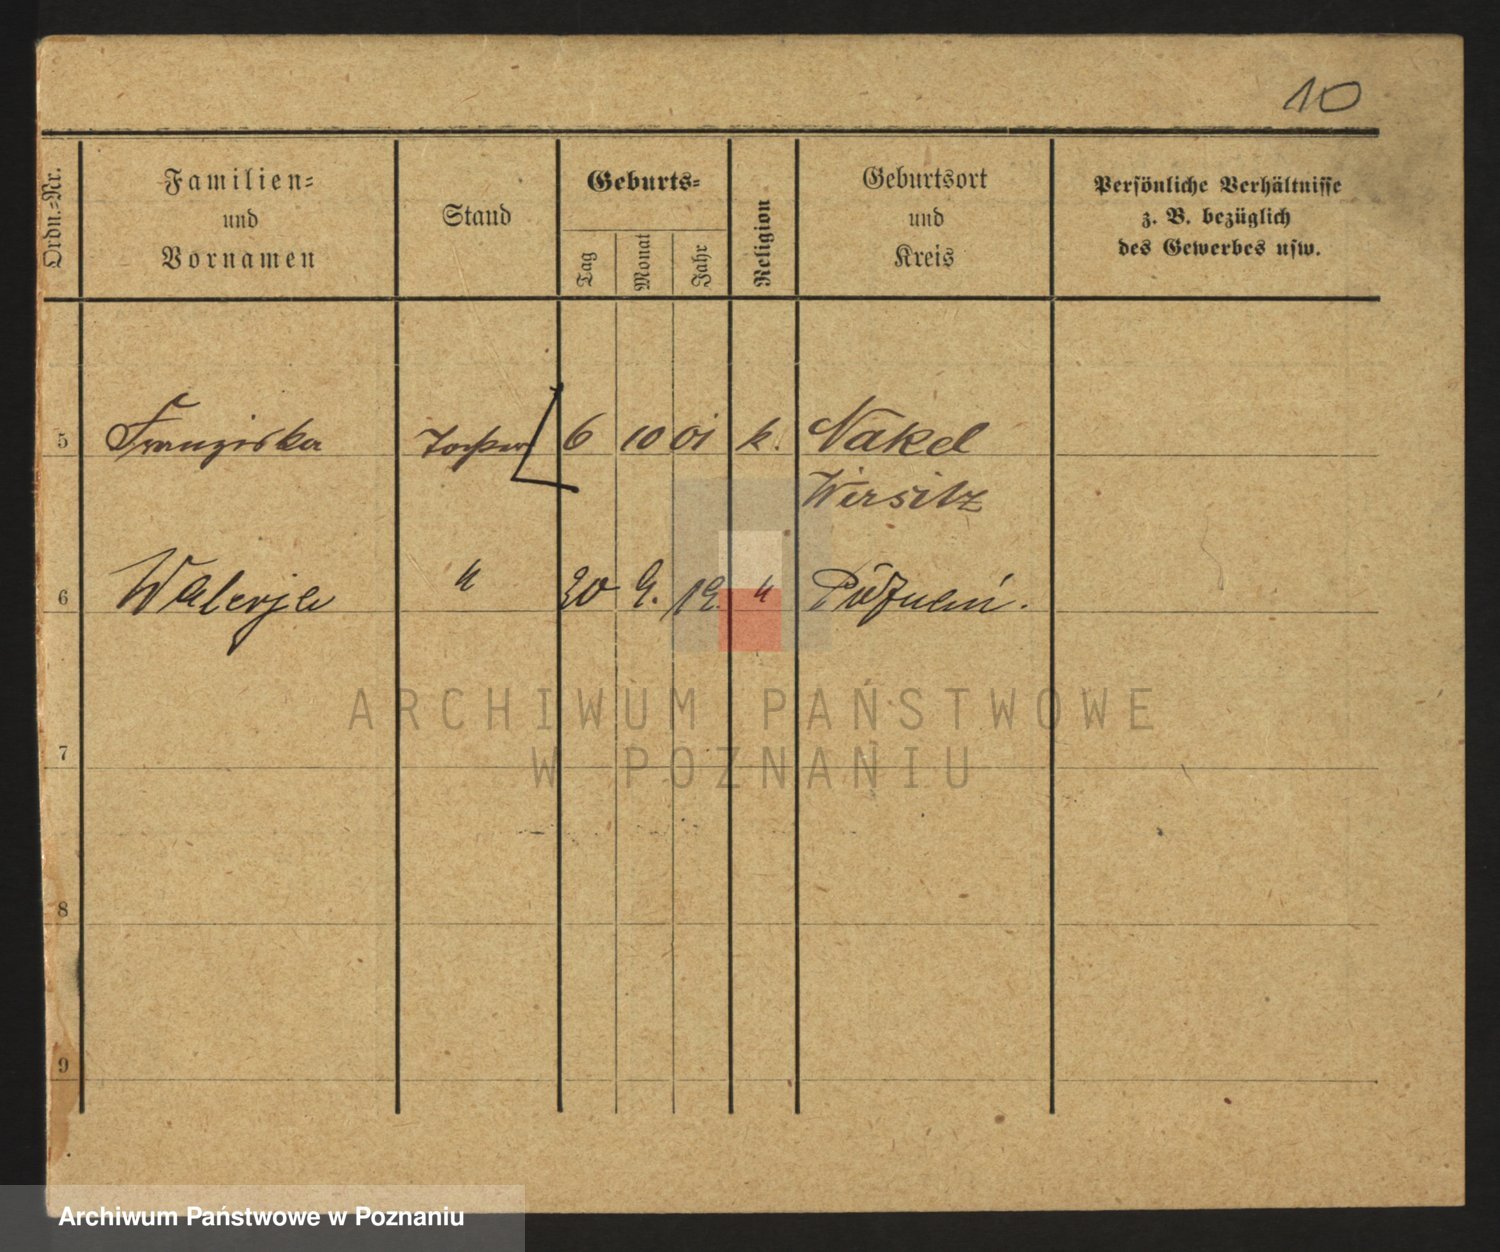 10
Ordn.-Nr.
Familien-
und
Vornamen
Stand
Geburts-
Tag
Monat
Jahr
Religion
Geburtsort
und
Kreis
Persönliche Verhältnisse
z. B. bezüglich
des Gewerbes usw.
5 Franziska Tochter 6 10 01 k. Nakel
Wirsitz
6 Walerja " 30 9. 19. " Poznań.
7
8
9
ARCHIWUM PAŃSTWOWE
W POZNANIU
Archiwum Państwowe w Poznaniu